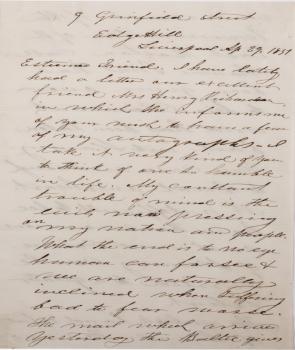 9 Grinfield Street
Edge Hill
Liverpool Ap. 29. 1851
Esteemed Friend. I have lately
had a letter our excellent
friend Mrs Henry Richardson
in which she informs me
of your wish to have a few
of my autographs - I
take it very kind of you
to think of one so humble
in life. My constant
trouble of mind is the
evils now pressing
on my nation and people.
What the end is to no eye
human can forsee &
we are naturally
inclined when
bad to fear worse.
The mail which arrived
Yesterday the Baltic gives